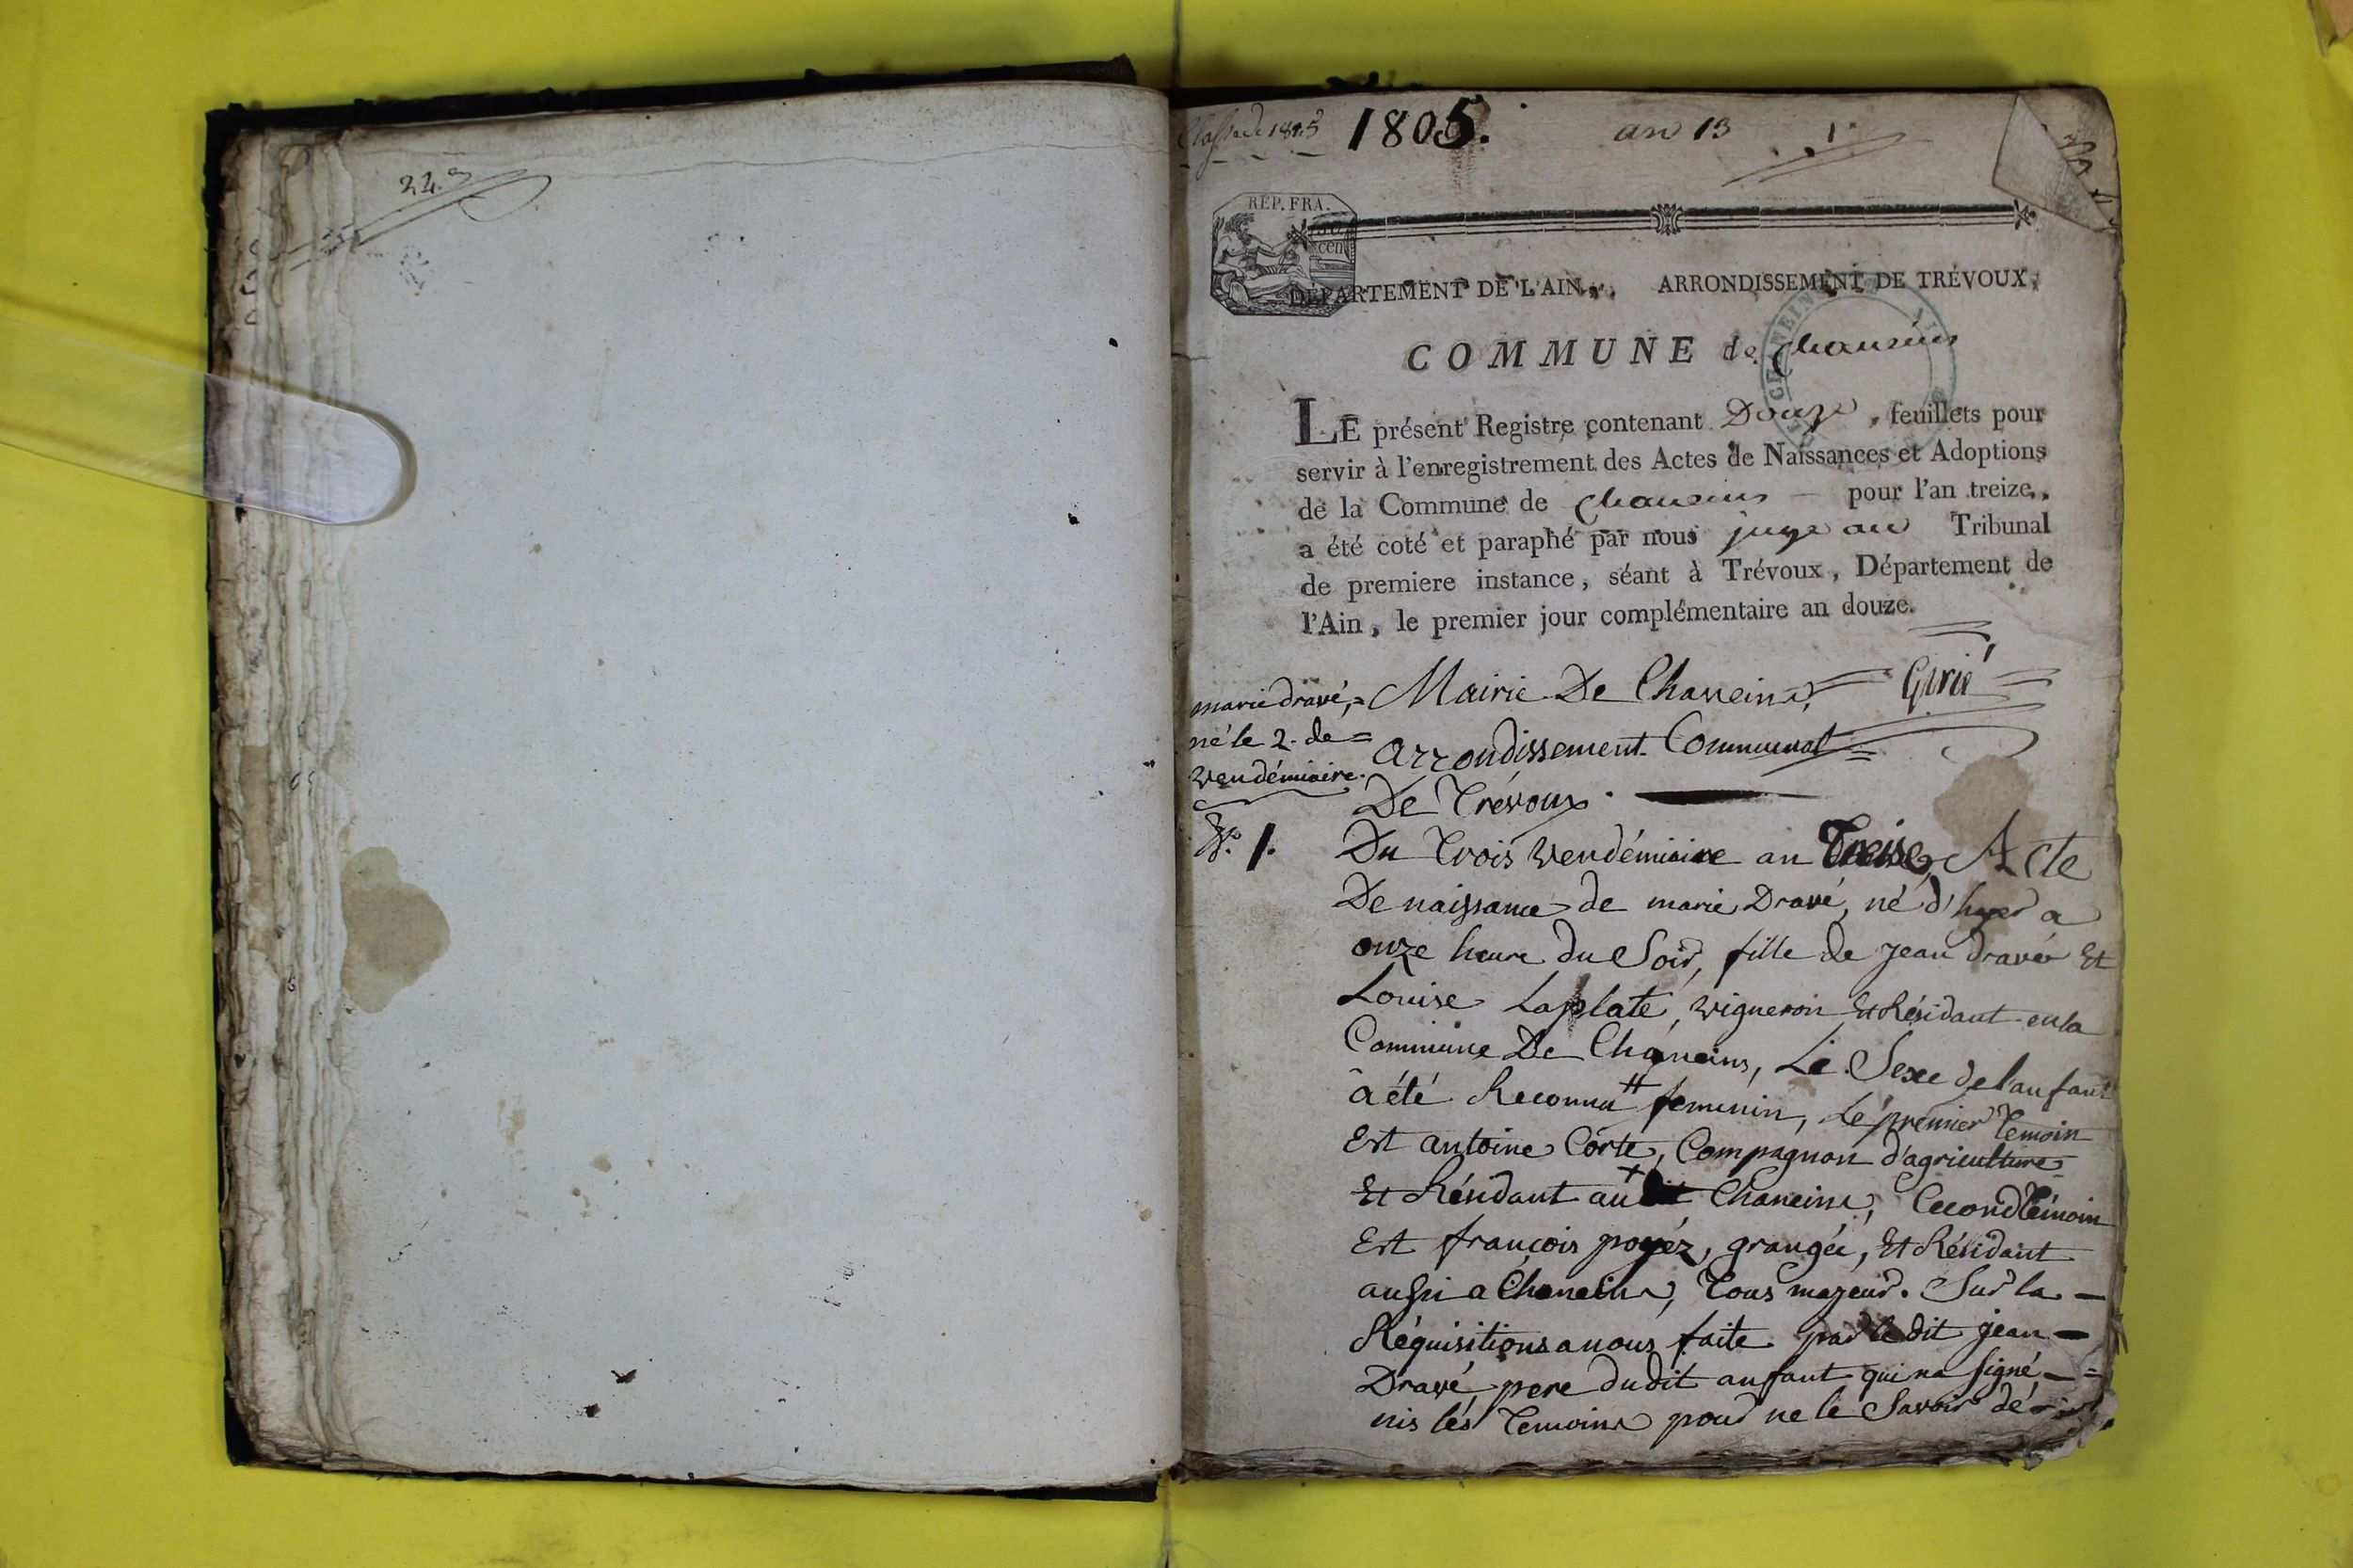 1805. an 13 1.
REP. FRA.
cen
DÉPARTEMENT DE L'AIN. ARRONDISSEMENT DE TRÉVOUX.
COMMUNE de chaneins
LE présent Registre contenant Douze feuillets pour
servir à l'enregistrement des Actes de Naissances et Adoptions
de la Commune de chaneins – pour l'an treize,
a été coté et paraphé par nous juge au Tribunal
de premiere instance, séant à Trévoux, Département de
l'Ain, le premier jour complémentaire an douze.
marie dravé,=
né le 2. de=
vendémiaire.
N.º 1.
Mairie De Chaneins,
arrondissement Communal=
De Trévoux.
Du trois vendémiaire an Treise, Acte
De naissance de marie Dravé, né d'hyer a
onze heure du Soir, fille de jean dravé Et
Louise Laplate, vigneron Et Résidant en la
Commune De Chaneins, Le Sexe de l'anfant
à été Reconnu feminin, Le premier temoin
Est antoine Corte, Compagnon d'agriculture
Et Résidant au Chaneins, Second témoin
Est françois poyéz, grangée, Et Résidant
aussi a Chaneins, tous majeur. Sur la –
Réquisitions a nous faite par le dit jean –
Dravé, pere dudit anfant qui na signé –=
nis lés temoins pour ne le Savoir dé–